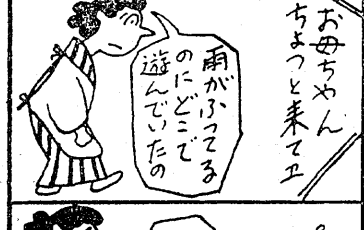 お母ちやん
ちよつと来てヱ
雨がふつてる
のにどこで
遊んでいたの